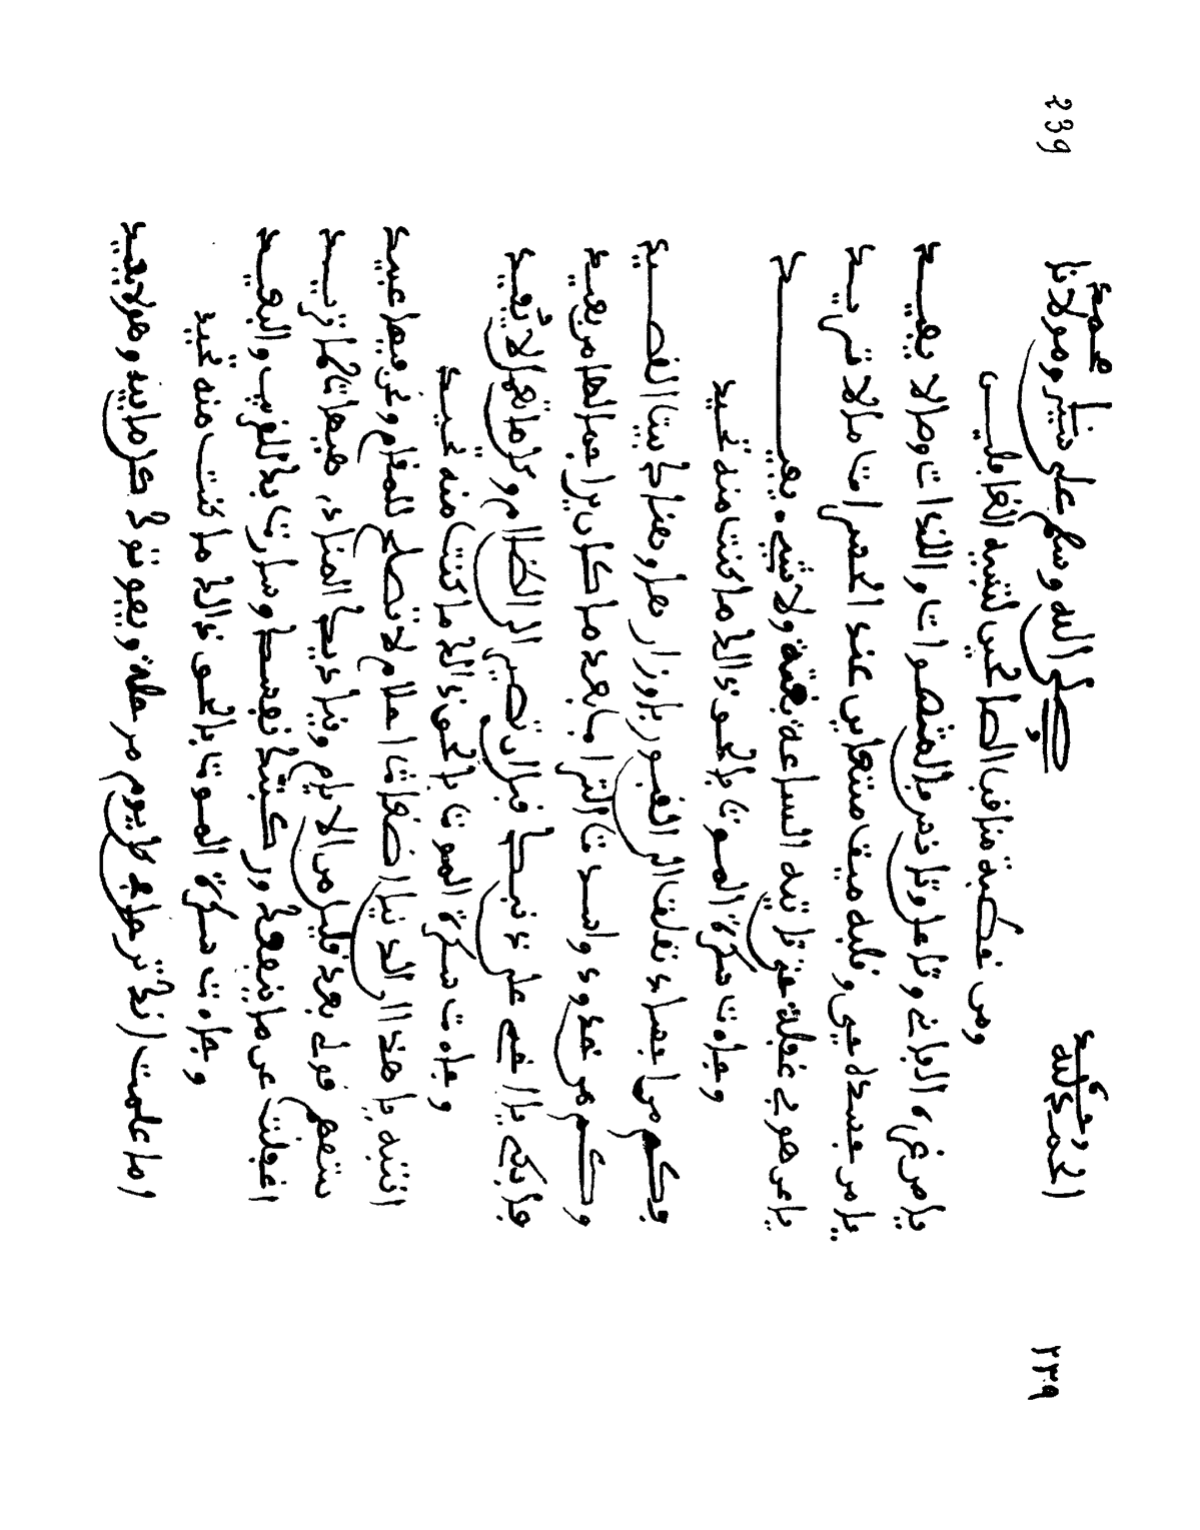 239
٢٣٩
الحمد لله وحده صلى الله وسلم على سيدنا ومولانا محمد
ومن خطبة مناقب الصالحين لتنبيه الغافلين
يا من غره وتلذذ واللذات وما لا يفيد
يا من جسده حي وقلبه ميت ستعاين عند الحسرات مالا تريد
يا من هو في غفلة تاتيه الساعة بغتة ولا شيء يفيد
وجاءت سكرة الموت بالحق ذالك ما كنت منه تحيد
فكم من اجساد نقلت الى القبور باوزارها وهناك بيت القصيد
وكم من خدود التراب بعد ما كان من بعيد
فابك يا اخي على ذنبك قبل ان تصير الى الظلام و لا يفيد
وجاءت سكرة الموت بالحق ذالك ما كنت منه تحيد
انتبه يا هذا ان الدنيا اضغاث احلام لا تصلح للمقام ونحن فيها عبيد
ستفهم قولي بعد قليل من الايام وينادي بك المناد تريد
اغفلت عن ما ينفعك وركبتك نفسك وسارت بك للقريب والبعيد
وجاءت سكرة الموت بالحق ذالك ما كنت منه تحيد
اما علمت انك ترحل في كل يوم مرحلة ويفوتك وهو لا يعيد